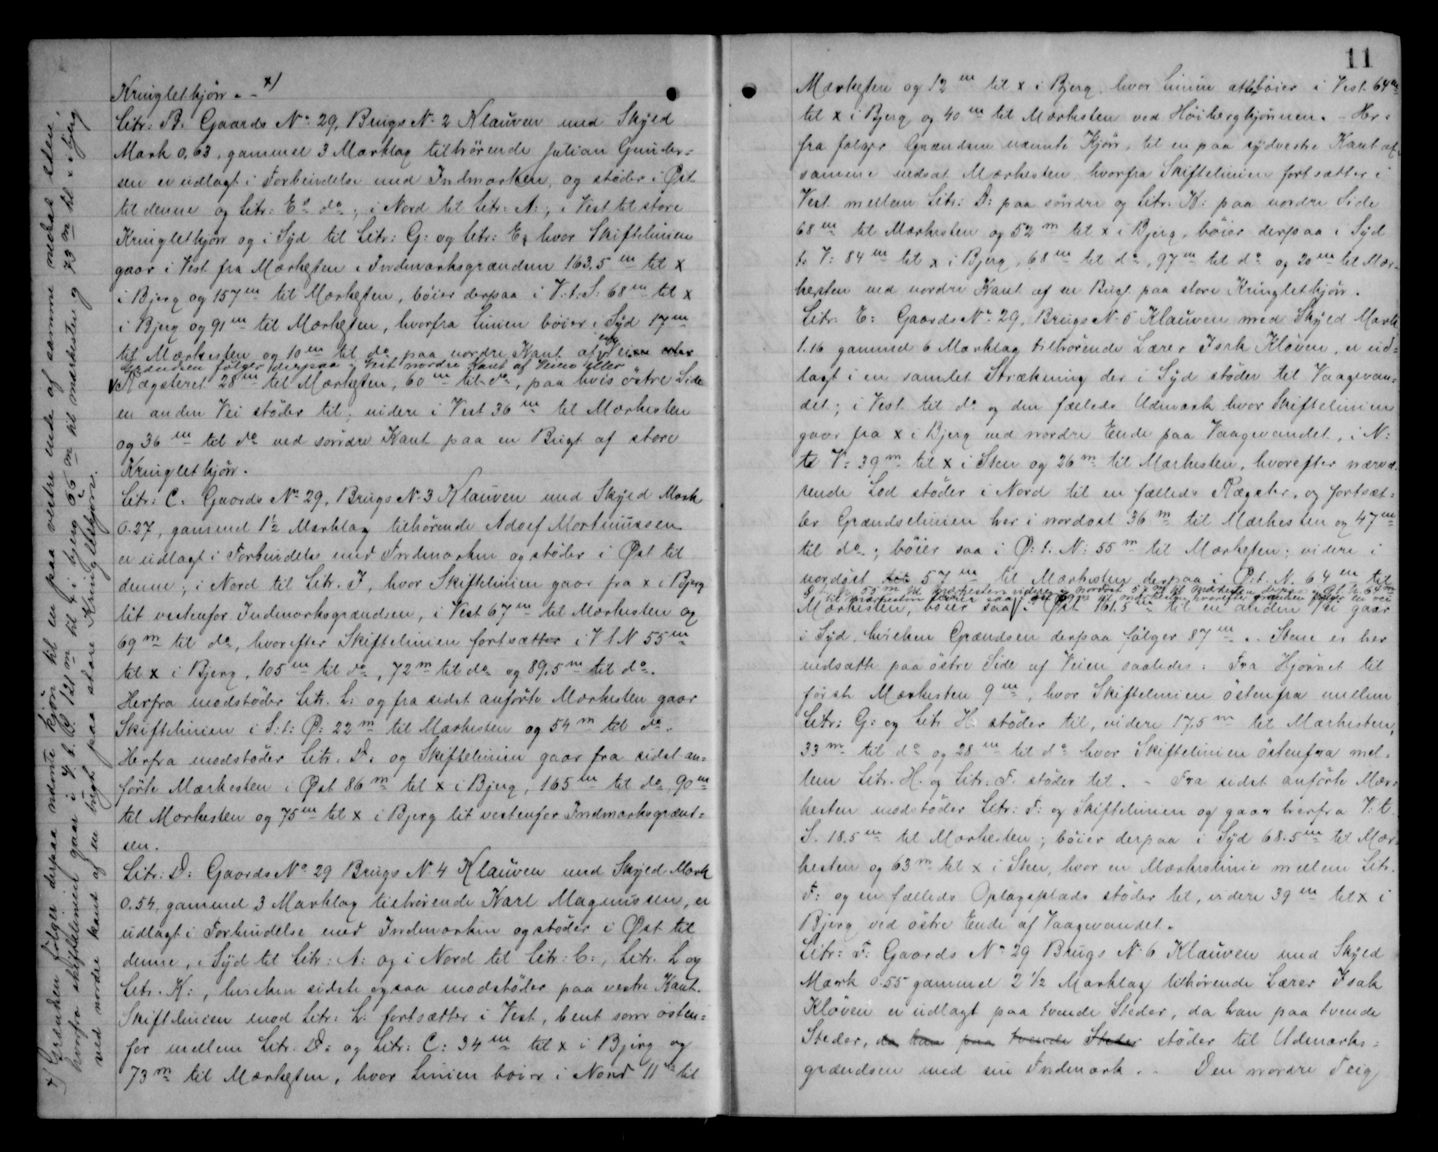 Kringletkjörn. - x)
Litr: B: Gaards No 29, Brugs No 2 Klauven med Skyld
Mark 0,63, gammel 3 Marklag tilhörende Julian Gunder-
sen er udlagt i Forbindelse med Indmarken, og støder i Øst
til denne og Litr: E: do; i Nord til Litr: A:, i Vest til store
Kringletkjörn og i Syd til Litr: G: og Litr: E, hvor Skiftelinien
gaar i Vest fra Mærkesten i Indmarksgrændsen 163,5 m til x
i Bjerg og 157 m til Mærkesten, böier derpaa i V: t: S: 68 m til x
i Bjerg og 91 m til Mærkesten, hvorfra Linien böier i Syd 17 m
til Mærkesten og 10 m til do paa nordre Kant af
Grændsen følger derpaa i Vest nordre Kant af Veien eller
Rægsteret 28 m til Mærkesten, 60 m til do, paa hvis östre Side
en anden Vei stöder til, videre i Vest 36 m til Mærkesten
og 36 m til do ved söndre Kant paa en Bugt af store
Kringletkjörn.
Litr: C: Gaards No 29, Brugs No 3 Klauven med Skyld Mark
0.27, gammel 1½ Marklag tilhörende Adolf Mortinussen
er udlagt i Forbindelse med Indmarken og støder i Øst til
denne; i Nord til Litr. I, hvor Skiftelinien gaar fra x i Bjerg
lit vestenfor Indmarksgrændsen, i Vest 67 m til Mærkesten og
69 m til do, hvorefter Skiftelinien fortsætter i V t. N 55 m
til x i Bjerg, 105 m til do, 72 m til do og 89.5 m til do.
Herfra modstöder Litr. L: og fra sidst anförte Mærkesten gaar
Skiftelinien i S: t: Ø: 22 m til Mærkesten og 54 m til do.
Herfra modstöder Litr. D: og Skiftelinien gaar fra sidst an-
förte Mærkesten i Øst 86 m til x i Bjerg, 165 m til do, 90 m
til Mærkesten og 75 m til x i Bjerg lit vestenfor Indmarksgrænd-
sen.
Litr: D: Gaards No 29 Brugs No 4 Klauven med Skyld Mark
0.54, gammel 3 Marklag tilhörende Karl Magnussen, er
udlagt i Forbindelse med Indmarken og støder i Øst til
denne, i Syd til Litr: A: og i Nord til Litr: C:, Litr. L og
Litr. K:, hvilken sidste ogsaa modstöder paa vestre Kant.
Skiftelinien mod Litr: L: fortsætter i Vest, bent som östen-
for mellem Litr. D: og Litr: C: 34 m til x i Bjerg og
73 m til Mærkesten, hvor Linien böier i Nord 11 m til
x) Grænsen følger derpaa nævnte kjörn til en paa vestre ende af samme nedsat sten,
hvorfra skiftelinien gaar i V. t. S. 121 m til x i bjerg 55 m til mærkesten og 73 m til x i bjerg
ved nordre kant af en bugt paa store Kringlethjörn.
11
Mærkesten og 12 m til x i Bjerg hvor Linien atböier i Vest 64 m
til x i Bjerg og 40 m til Mærksten ved Höibergkjönnen. - Her-
fra følger Grændsen nævnte Kjörn, til en paa sydvestre Kant af
samme nedsat Mærkesten, hvorfra Skiftelinien fortsætter i
Vest mellem Litr: D: paa söndre og Litr. K: paa nordre Side
68 m til Mærkesten og 52 m til x i Bjerg, böier derpaa i Syd
t. V: 84 m til x i Bjerg, 68 m til do, 97 m til do og 20 m til Mær-
kesten ved nordre Kant af en Bugt paa store Kringletkjörn.
Litr: E: Gaards No 29, Brugs No 5 Klauven med Skyld Mark
1.16 gammel 6 Marklag tilhörende Lærer Isak Kløven, er ud-
lagt i en samlet Strækning der i Syd støder til Vaagevan-
det; i Vest til do og den fælleds Udmark hvor Skiftelinien
gaar fra x i Bjerg ved nordre Ende paa Vaagevandet, i N:
t. V: 39 m til x i Sten og 26 m til Mærkesten, hvorefter nærvæ-
rende Lod støder i Nord til en fælleds Rægster, og fortsæt-
ter Grændselinien her i nordost 36 m til Mærkesten og 47 m
til do; böier saa i Ø: t. N: 55 m til Mærkesten; videre i
nordöst 57 m til Mærkesten derpaa i Ø: t. N. 64 m til
Mærkesten, böier saa i Øst 161.5 m til en anden Vei gaar
i Syd, hvilken Grændsen derpaa følger 87 m. - Stene er her
nedsatte paa östre Side af Veien saaledes: Fra Hjørnet til
første Mærkesten 9 m, hvor Skiftelinien östenfra mellem
Litr: G: og Litr H: støder til, videre 17,5 m til Mærkesten,
33 m til do og 28 m til do hvor Skiftelinien östenfra mel-
lem Litr. H. og Litr. F. støder til. - Fra sidst anförte Mær-
kesten modstöder Litr: F: og Skiftelinien og gaar herfra V. t
S. 18.5 m til Mærkesten; böier derpaa i Syd 68.5 m til Mær-
kesten og 63 m til x i Sten, hvor en Mærkeslinie mellem Litr.
F: og en fælleds Oplagsplads støder til, videre 39 m til x i
Bjerg ved östre Ende af Vaagevandet.
Litr: F: Gaards No 29 Brugs No 6 Klauven med Skyld
Mark 0.55 gammel 2½ Marklag tilhörende Lærer Isak
Kløven er udlagt paa tvende Steder, da han paa tvende
Steder, da han paa tvende Steder støder til Udmarks-
grændsen med sin Indmark. - Den nordre Teig